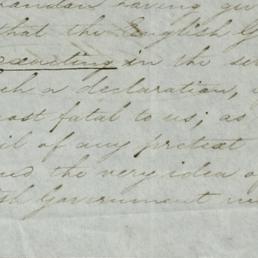 having giv
that the English G
executing in the se
ch a declaration,
ost fatal to us; as
il of any pretext
and the very idea of
sh Government